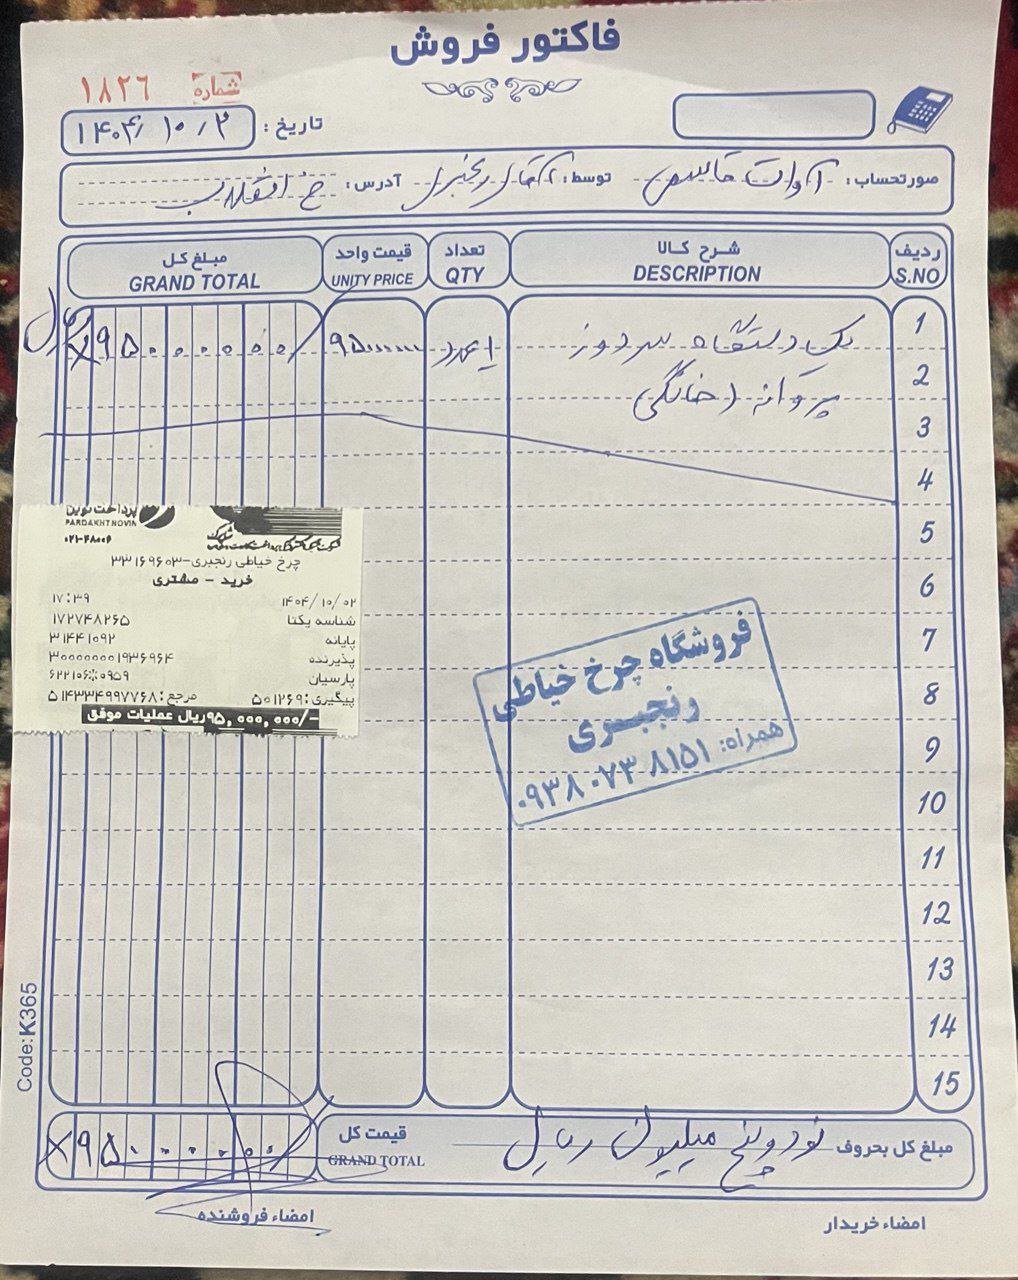 فاکتور فروش
شماره ۱۸۲۶
تاریخ: ۱۴۰۴/۱۰/۲
صورتحساب: آوات توسط: آقای رنجبری آدرس: خ انقلاب
ردیف شرح کالا تعداد قیمت واحد مبلغ کل
S.NO DESCRIPTION QTY UNITY PRICE GRAND TOTAL
1 یک دستگاه سردوز ۱ عدد ۹۵۰۰۰۰۰۰ ۹۵۰۰۰۰۰۰ ریال
2 پروانه (خانگی)
3
4
5
6
7
8
9
10
11
12
13
14
15
پرداخت نوین
PARDAKHT NOVIN
۰۲۱-۴۸۰۰۶
چرخ خیاطی رنجبری-۳۳۱۶۹۶۰۳
خرید - مشتری
۱۴۰۴/۱۰/۰۲ ۱۷:۳۹
شناسه یکتا ۱۷۲۷۴۸۲۶۵
پایانه ۳۱۴۴۱۰۹۲
پذیرنده ۳۰۰۰۰۰۰۰۱۹۳۶۹۶۴
پارسیان ۶۲۲۱۰۶٪۰۹۵۹
پیگیری: ۵۰۱۲۶۹ مرجع: ۵۱۴۳۳۴۹۹۷۷۶۸
۹۵,۰۰۰,۰۰۰/- ریال عملیات موفق
فروشگاه چرخ خیاطی
رنجبری
همراه: ۰۹۳۸۰۷۳۸۱۵۱
مبلغ کل بحروف نود و پنج میلیون ریال قیمت کل ۹۵۰۰۰۰۰۰
GRAND TOTAL
امضاء خریدار امضاء فروشنده
Code: K365